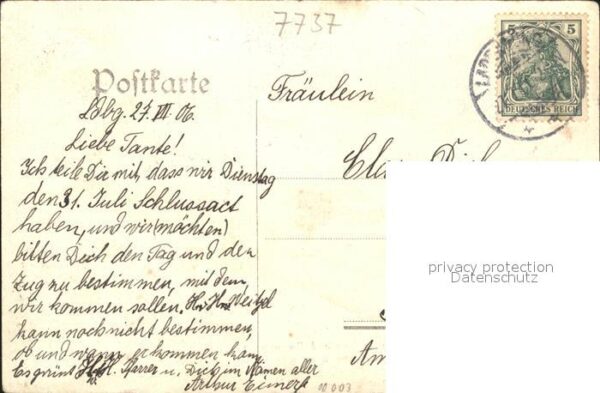 7737
5 5
DEUTSCHES REICH
Postkarte
Ldbg. 27. VII. 06.
Fräulein
Liebe Tante!
Ich teile Dir mit, dass wir Dienstag
den 31. Juli Schlussact
haben, und wir (möchten)
bitten Dich den Tag und den
Zug zu bestimmen, mit dem
wir kommen sollen. Hr. Hr. Weigel
kann noch nicht bestimmen,
ob und wann er kommen kann.
Es grüsst Pfarrer u. Dich im Namen aller
Arthur
10 003
privacy protection
Datenschutz